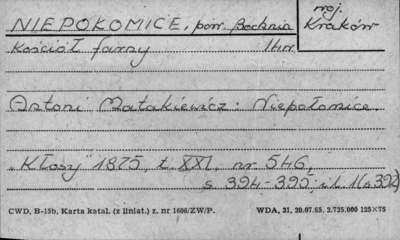 NIEPOŁOMICE, pow. Bochnia
woj.
Kraków
Kościół farny
Antoni Matakiewicz: Niepołomice.
"Kłosy" 1875, t. XXI, nr 546,
s 394-395; il. 1 (s 392)
CWD, B-15b, Karta katal. (z liniat.) z. nr 1606/ZW/P. WDA, 31, 20.07.65, 2.735.000 125×75